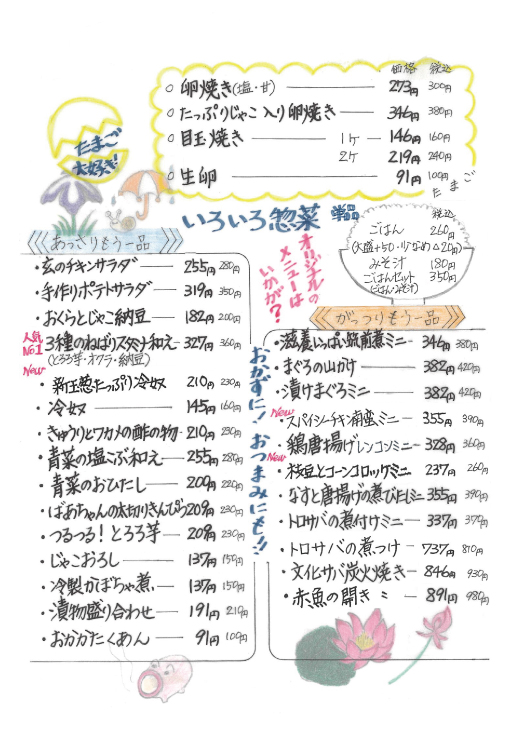 価格 税込
たまご大好き!
○ 卵焼き(塩・甘) 273円 300円
○ たっぷりじゃこ入り卵焼き 346円 380円
○ 目玉焼き 1ケ 146円 160円
2ケ 219円 240円
○ 生卵 91円 100円
たまご
いろいろ惣菜 単品
オリジナルのメニューはいかが?
税込
ごはん 260円
(大盛+50・少なめ△20円)
みそ汁 180円
ごはんセット 350円
(ごはん・みそ汁)
あっさりもう一品
・玄のチキンサラダ 255円 280円
・手作りポテトサラダ 319円 350円
・おくらとじゃこ納豆 182円 200円
人気No1
・3種のねばりスタミナ和え 327円 360円
(とろろ芋・オクラ・納豆)
New
・新玉葱たっぷり冷奴 210円 230円
・冷奴 145円 160円
・きゅうりとワカメの酢の物 210円 230円
・青菜の塩こぶ和え 255円 280円
・青菜のおひたし 200円 220円
・ばあちゃんの太切りきんぴら 209円 230円
・つるつる!とろろ芋 209円 230円
・じゃこおろし 137円 150円
・冷製かぼちゃ煮 137円 150円
・漬物盛り合わせ 191円 210円
・おかかたくあん 91円 100円
おかずに!おつまみにも!!
がっつりもう一品
・滋養いっぱい筑前煮ミニ 346円 380円
・まぐろの山かけ 382円 420円
・漬けまぐろミニ 382円 420円
New
・スパイシーチキン南蛮ミニ 355円 390円
・鶏唐揚げレンコンミニ 328円 360円
New
・枝豆とコーンコロッケミニ 237円 260円
・なすと唐揚げの煮びたしミニ 355円 390円
・トロサバの煮付けミニ 337円 370円
・トロサバの煮つけ 737円 810円
・文化サバ炭火焼き 846円 930円
・赤魚の開き 〃 891円 980円